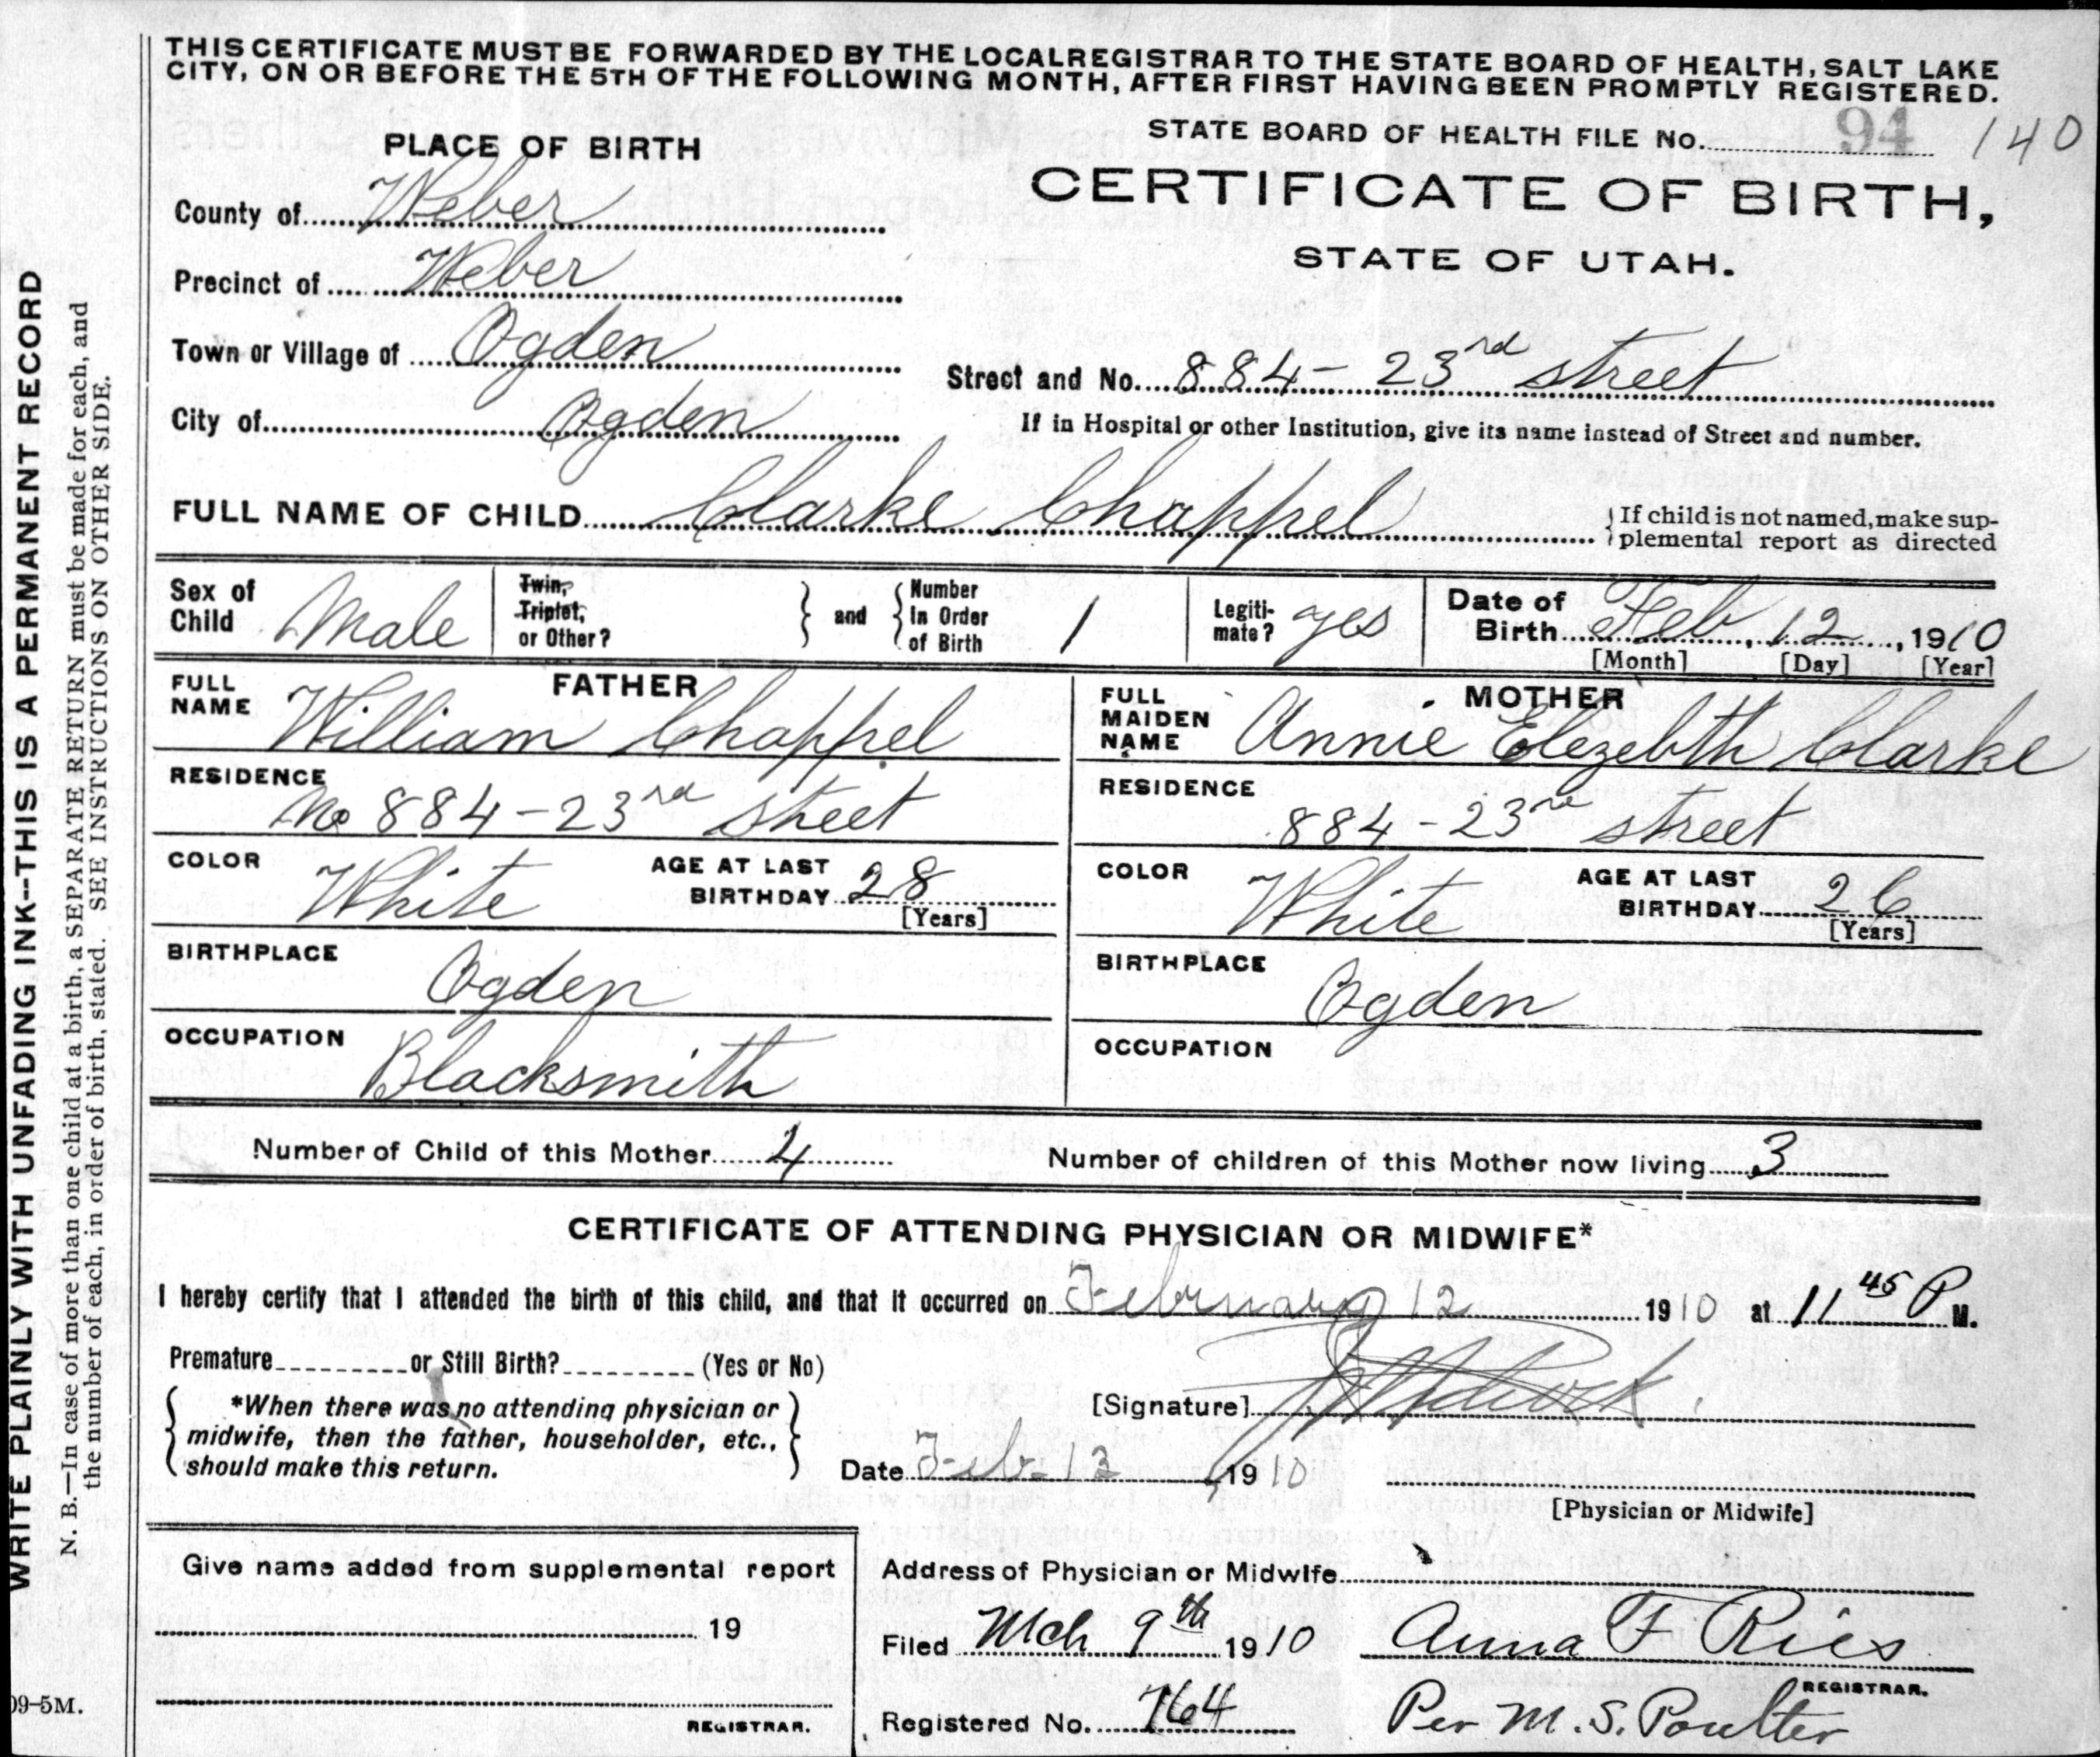 THIS CERTIFICATE MUST BE FORWARDED BY THE LOCAL REGISTRAR TO THE STATE BOARD OF HEALTH, SALT LAKE
CITY, ON OR BEFORE THE 5TH OF THE FOLLOWING MONTH, AFTER FIRST HAVING BEEN PROMPTLY REGISTERED.
STATE BOARD OF HEALTH FILE No. 94 140
CERTIFICATE OF BIRTH,
STATE OF UTAH.
PLACE OF BIRTH
County of Weber
Precinct of Weber
Town or Village of Ogden
City of Ogden
Street and No. 884 - 23rd street
If in Hospital or other Institution, give its name instead of Street and number.
FULL NAME OF CHILD Clarke Chappel
{If child is not named, make sup-
plemental report as directed
Sex of Child Male
Twin, Triplet, or Other? } and { Number In Order of Birth 1
Legiti-mate? yes
Date of Birth Feb, 12, 1910
[Month] [Day] [Year]
FATHER
FULL NAME William Chappel
RESIDENCE No 884 - 23rd street
COLOR White AGE AT LAST BIRTHDAY 28
[Years]
BIRTHPLACE Ogden
OCCUPATION Blacksmith
MOTHER
FULL MAIDEN NAME Annie Elezebth Clarke
RESIDENCE 884 - 23rd street
COLOR White AGE AT LAST BIRTHDAY 26
[Years]
BIRTHPLACE Ogden
OCCUPATION
Number of Child of this Mother 4 Number of children of this Mother now living 3
CERTIFICATE OF ATTENDING PHYSICIAN OR MIDWIFE*
I hereby certify that I attended the birth of this child, and that it occurred on February 12 1910 at 11 45 P M.
Premature or Still Birth? (Yes or No)
*When there was no attending physician or
midwife, then the father, householder, etc.,
should make this return.
[Signature]
Date Feb. 12, 1910
[Physician or Midwife]
Give name added from supplemental report
19
REGISTRAR.
Address of Physician or Midwife
Filed Mch 9th 1910 Anna F Ries
REGISTRAR.
Registered No. 764 Per M. S. Poulter
WRITE PLAINLY WITH UNFADING INK--THIS IS A PERMANENT RECORD
N. B.—In case of more than one child at a birth, a SEPARATE RETURN must be made for each, and
the number of each, in order of birth, stated. SEE INSTRUCTIONS ON OTHER SIDE.
09-5M.